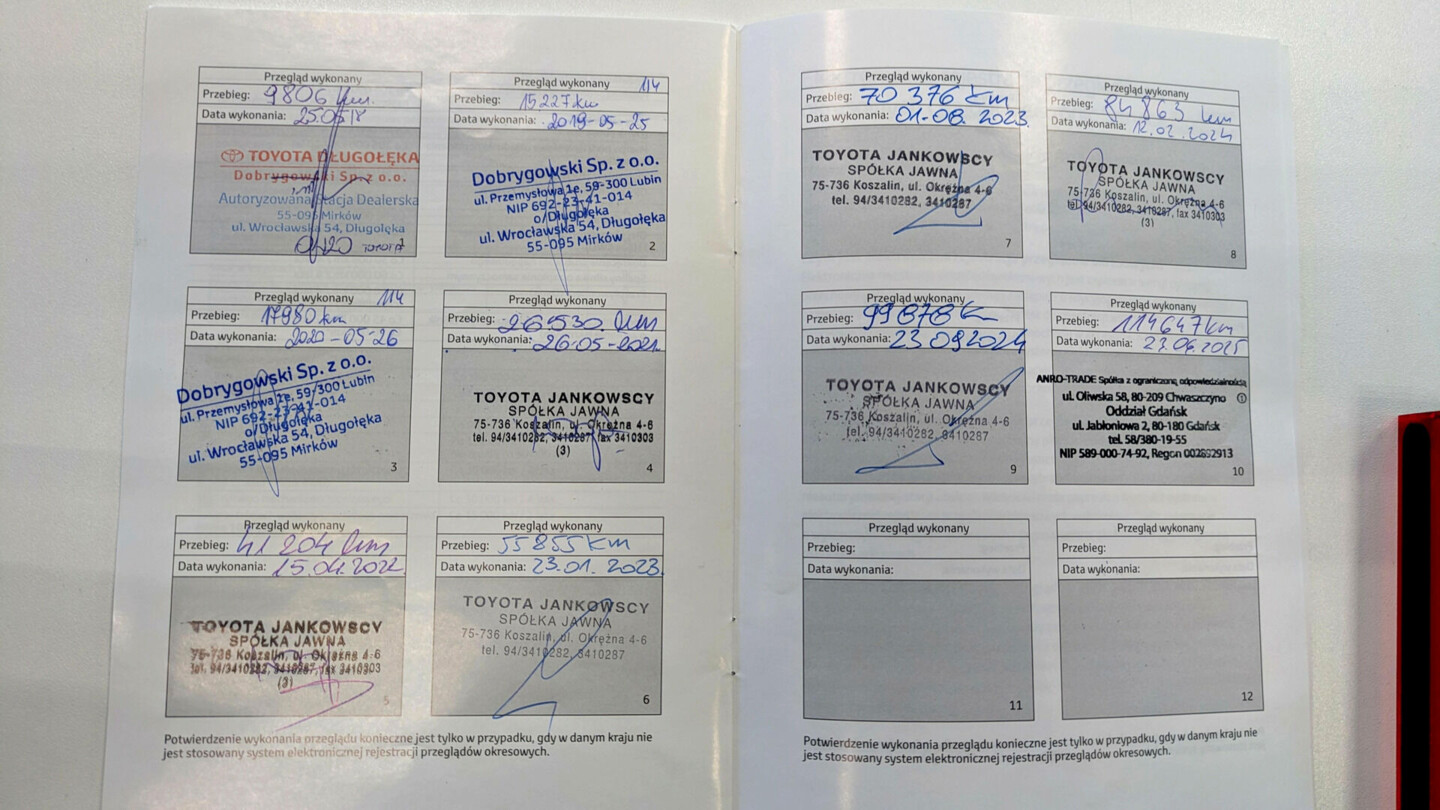 Przegląd wykonany
Przebieg: 9806 km.
Data wykonania: 25.05.18
TOYOTA DŁUGOŁĘKA
Dobrygowski Sp. z o.o.
Autoryzowana Stacja Dealerska
55-095 Mirków
ul. Wrocławska 54, Długołęka
0W20 TOYOTA
1
Przegląd wykonany 114
Przebieg: 15227 km
Data wykonania: 2019-05-25
Dobrygowski Sp. z o.o.
ul. Przemysłowa 1e, 59-300 Lubin
NIP 692-23-41-014
o/Długołęka
ul. Wrocławska 54, Długołęka
55-095 Mirków
2
Przegląd wykonany 114
Przebieg: 17980 km
Data wykonania: 2020-05-26
Dobrygowski Sp. z o.o.
ul. Przemysłowa 1e, 59/300 Lubin
NIP 692-23-41-014
o/Długołęka
ul. Wrocławska 54, Długołęka
55-095 Mirków
3
Przegląd wykonany
Przebieg: 26530 km
Data wykonania: 26-05-2021.
TOYOTA JANKOWSCY
SPÓŁKA JAWNA
75-736 Koszalin, ul. Okrężna 4-6
tel. 94/3410282, 3410287, fax 3410303
(3)
4
Przegląd wykonany
Przebieg: 41 204 km
Data wykonania: 15.04.2022.
TOYOTA JANKOWSCY
SPÓŁKA JAWNA
75-736 Koszalin, ul. Okrężna 4-6
tel. 94/3410282, 3410287, fax 3410303
(3)
5
Przegląd wykonany
Przebieg: 55855 km
Data wykonania: 23.01. 2023.
TOYOTA JANKOWSCY
SPÓŁKA JAWNA
75-736 Koszalin, ul. Okrężna 4-6
tel. 94/3410282, 3410287
6
Potwierdzenie wykonania przeglądu konieczne jest tylko w przypadku, gdy w danym kraju nie
jest stosowany system elektronicznej rejestracji przeglądów okresowych.
Przegląd wykonany
Przebieg: 70 376 km
Data wykonania: 01-08. 2023.
TOYOTA JANKOWSCY
SPÓŁKA JAWNA
75-736 Koszalin, ul. Okrężna 4-6
tel. 94/3410282, 3410287
7
Przegląd wykonany
Przebieg: 84 863 km
Data wykonania: 12.02.2024
TOYOTA JANKOWSCY
SPÓŁKA JAWNA
75-736 Koszalin, ul. Okrężna 4-6
tel. 94/3410282, 3410287, fax 3410303
(3)
8
Przegląd wykonany
Przebieg: 99878 k
Data wykonania: 23 09 2024
TOYOTA JANKOWSCY
SPÓŁKA JAWNA
75-736 Koszalin, ul. Okrężna 4-6
tel. 94/3410282, 3410287
9
Przegląd wykonany
Przebieg: 114647 km
Data wykonania: 23.04.2025
ANRO-TRADE Spółka z ograniczoną odpowiedzialnością
ul. Oliwska 58, 80-209 Chwaszczyno ①
Oddział Gdańsk
ul. Jabłoniowa 2, 80-180 Gdańsk
tel. 58/380-19-55
NIP 589-000-74-92, Regon 002852913
10
Przegląd wykonany
Przebieg:
Data wykonania:
11
Przegląd wykonany
Przebieg:
Data wykonania:
12
Potwierdzenie wykonania przeglądu konieczne jest tylko w przypadku, gdy w danym kraju nie
jest stosowany system elektronicznej rejestracji przeglądów okresowych.